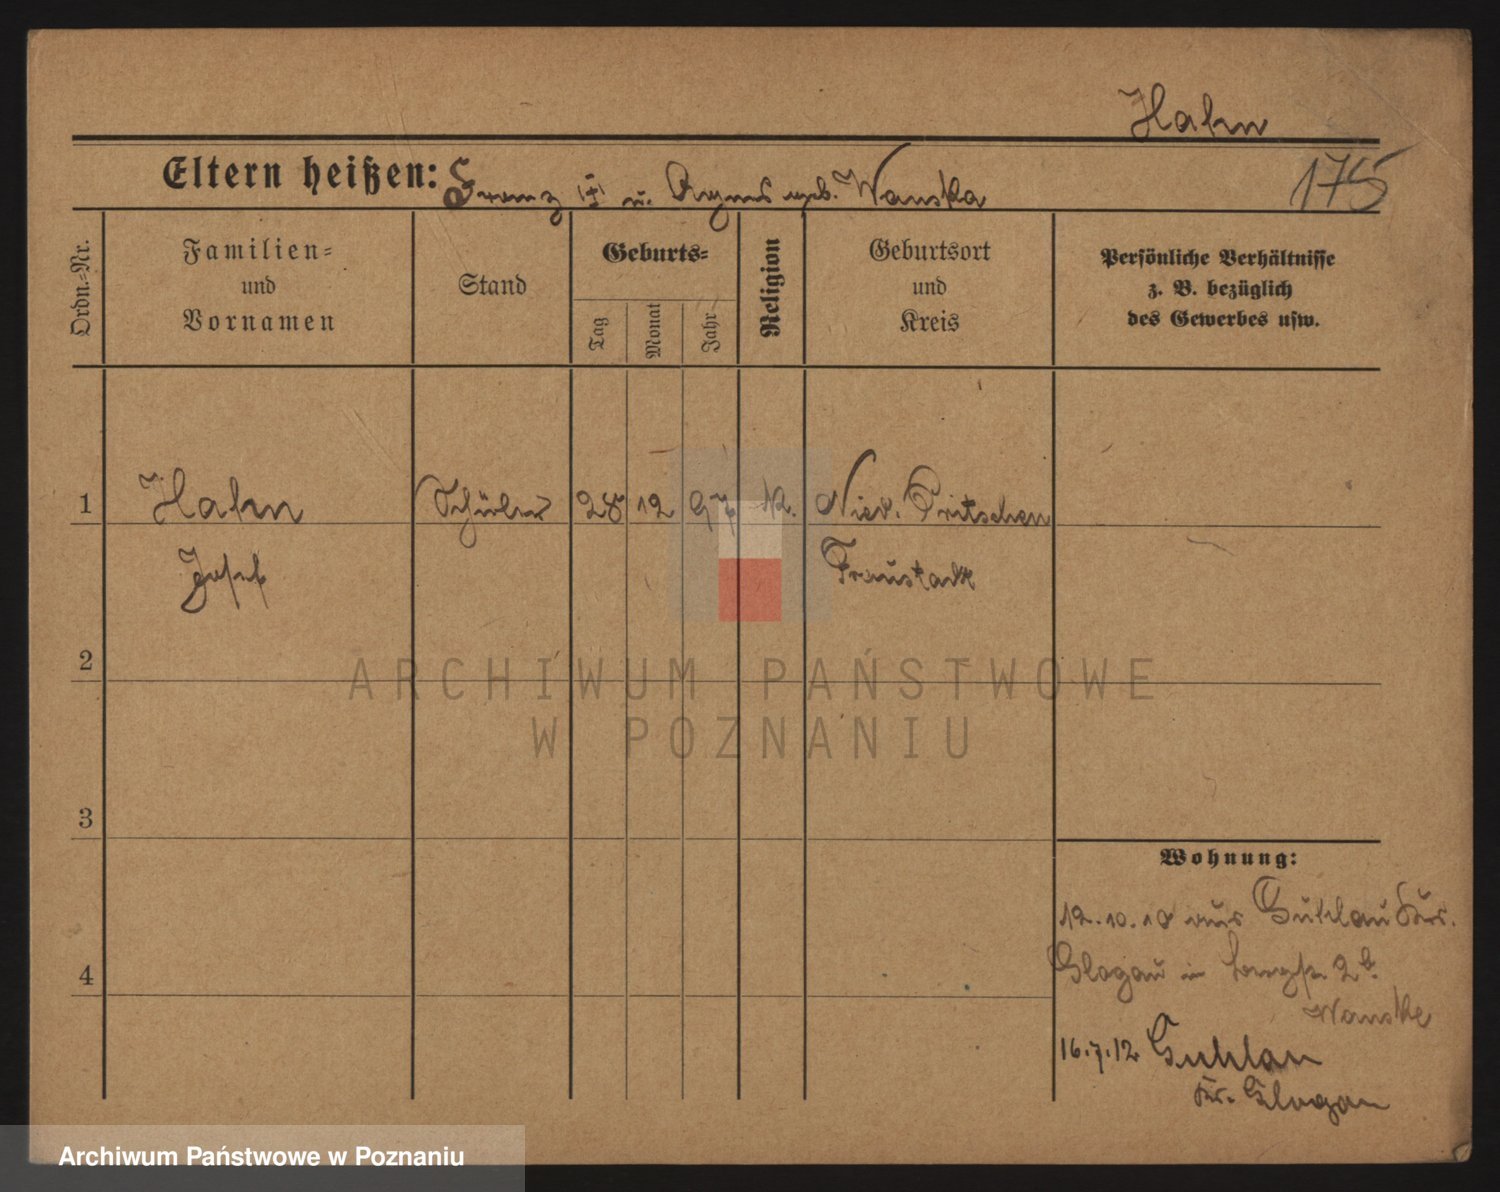 Hahn
Eltern heißen: Franz (†) u. Agnes geb. Wanska
175
Ordn.-Nr.
Familien-
und
Vornamen
Stand
Geburts-
Tag
Monat
Jahr
Religion
Geburtsort
und
Kreis
Persönliche Verhältnisse
z. B. bezüglich
des Gewerbes usw.
1 Hahn Schüler 28 12 97 K. Nied. Pritschen
Josef Fraustadt
2
3
4
Wohnung:
12.10.10 aus Guhlau Kr.
Glogau in 2b.
Wanske
16.7.12 Guhlau
Kr. Glogau
ARCHIWUM PAŃSTWOWE
W POZNANIU
Archiwum Państwowe w Poznaniu